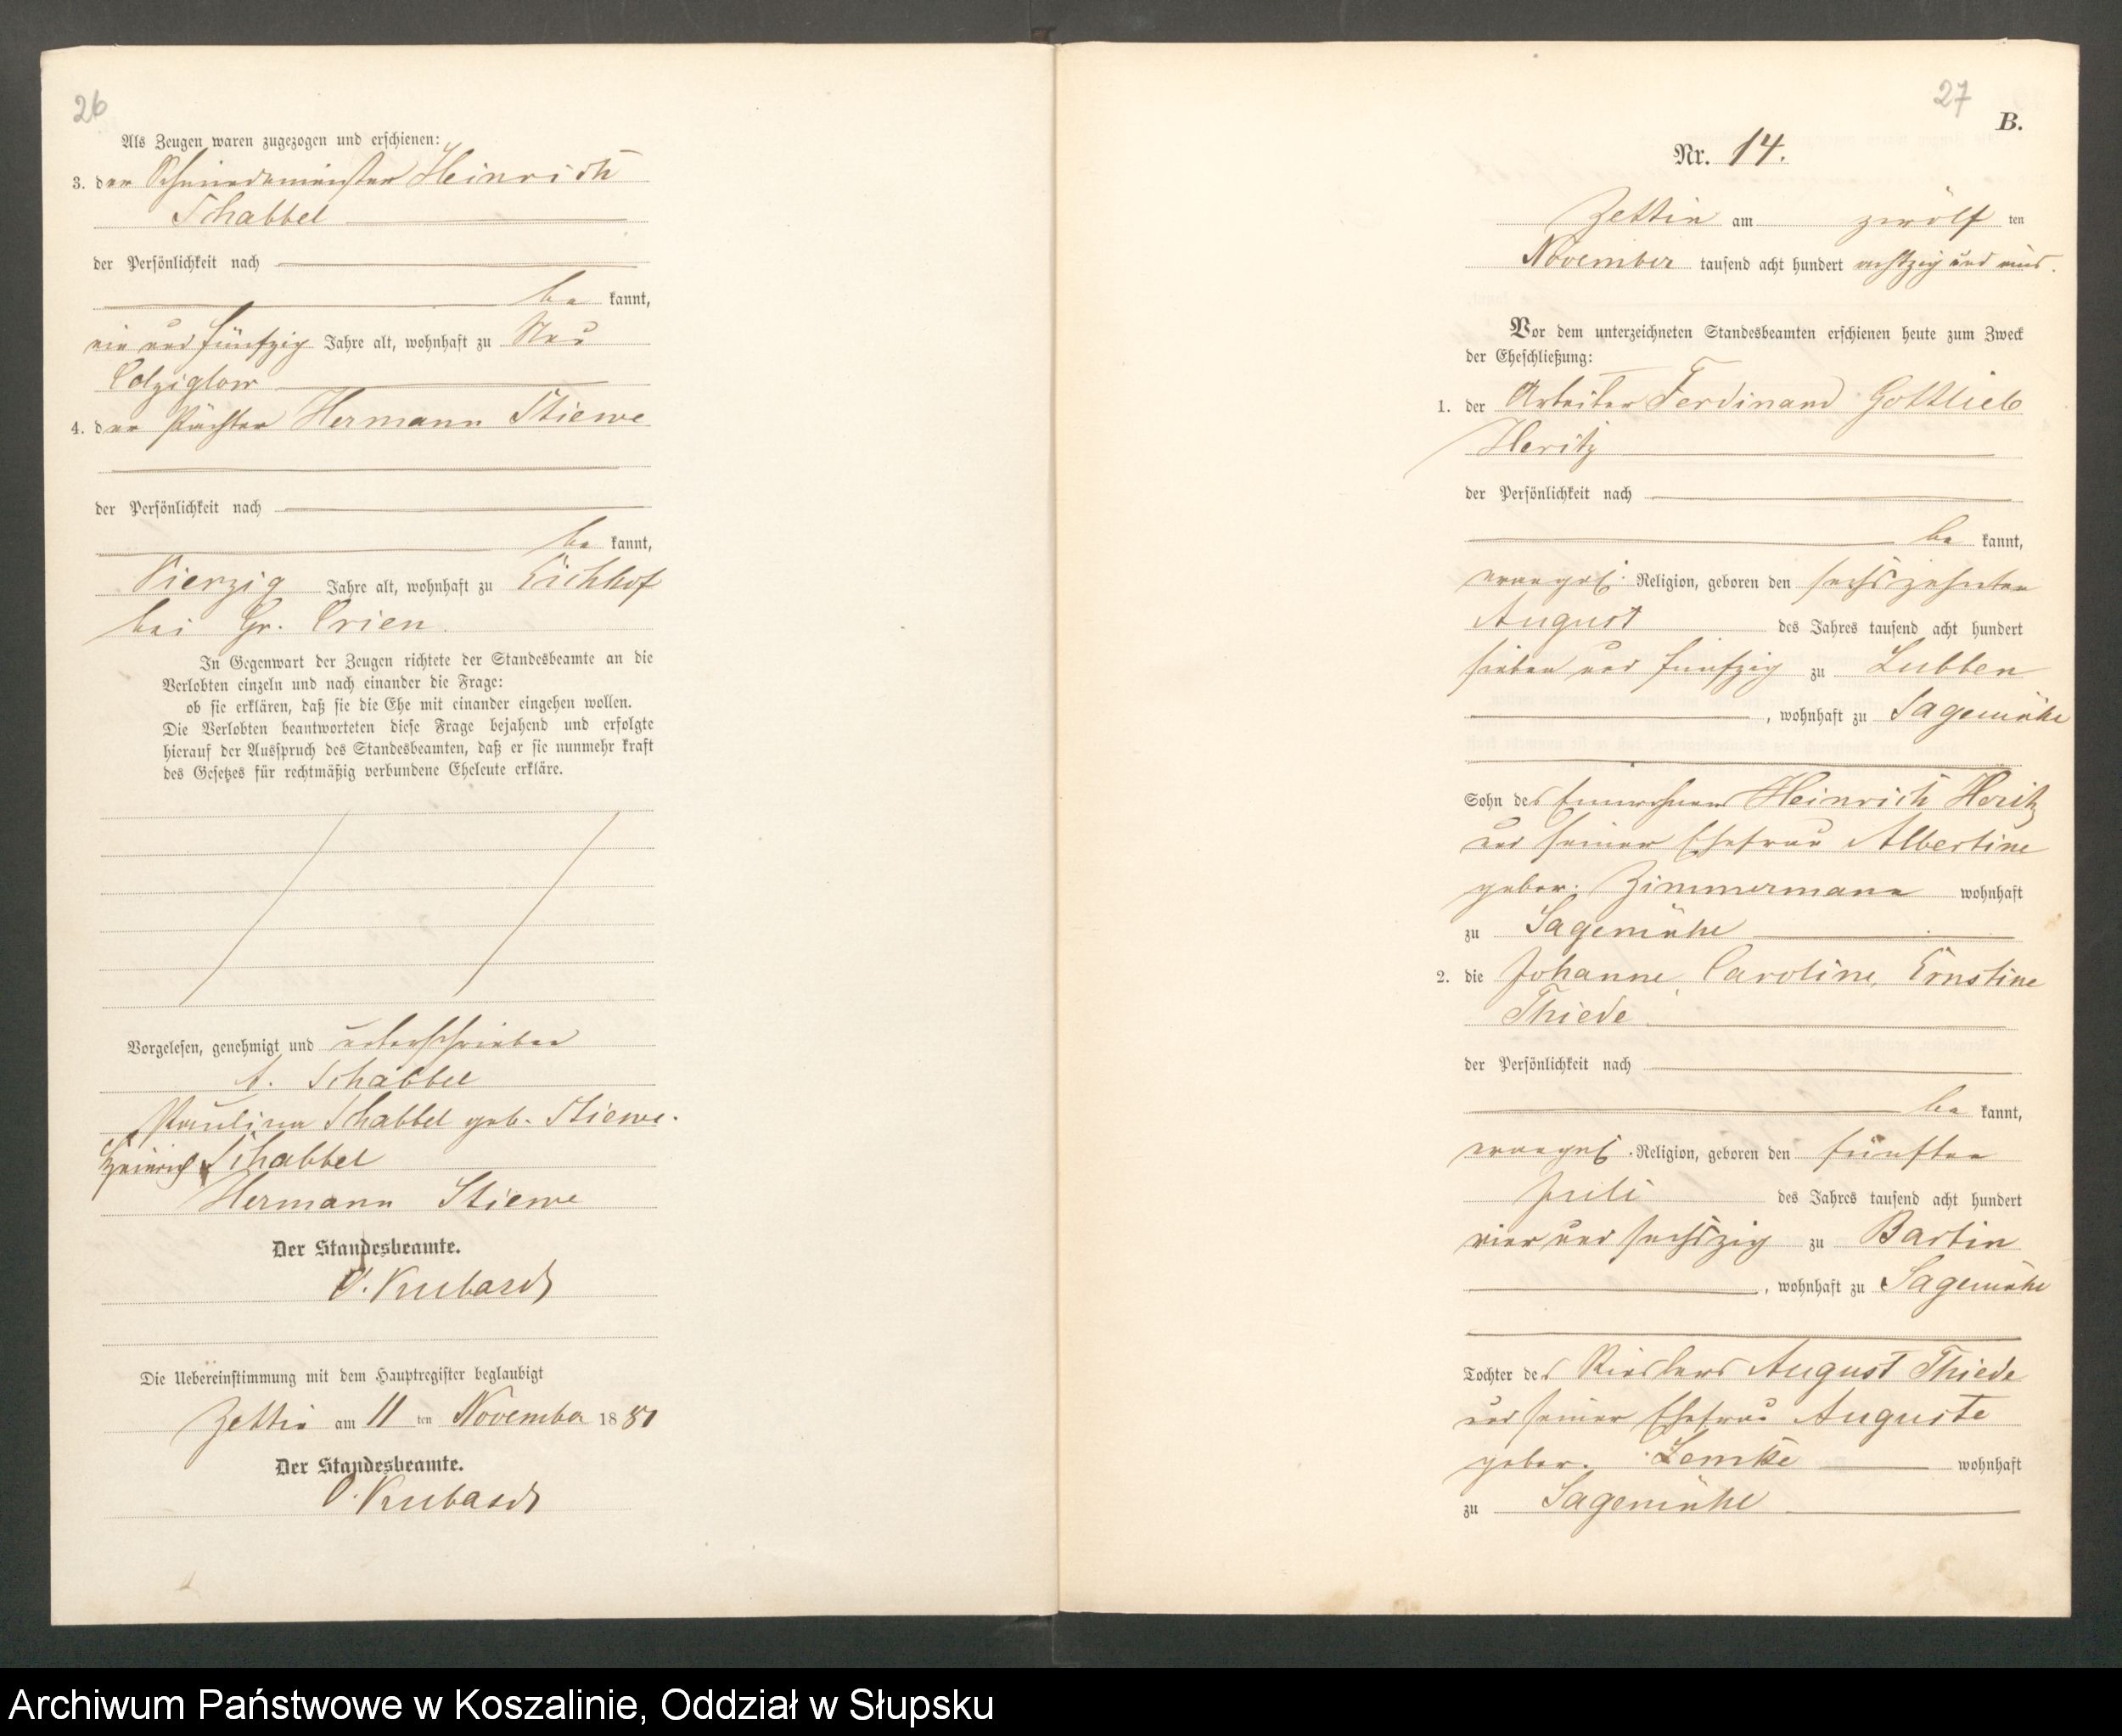 26
Als Zeugen waren zugezogen und erschienen:
3. der Schmiedemeister Heinrich
Schabbel
der Persönlichkeit nach
be kannt,
ein und fünfzig Jahre alt, wohnhaft zu Neu
Colziglow
4. der Pächter Hermann Stiewe
der Persönlichkeit nach
be kannt,
Vierzig Jahre alt, wohnhaft zu Eichhof
bei Gr. Crien.
In Gegenwart der Zeugen richtete der Standesbeamte an die
Verlobten einzeln und nach einander die Frage:
ob sie erklären, daß sie die Ehe mit einander eingehen wollen.
Die Verlobten beantworteten diese Frage bejahend und erfolgte
hierauf der Ausspruch des Standesbeamten, daß er sie nunmehr kraft
des Gesetzes für rechtmäßig verbundene Eheleute erkläre.
Vorgelesen, genehmigt und unterschrieben
A. Schabbel
Pauline Schabbel geb. Stiewe.
Heinrich Schabbel
Hermann Stiewe
Der Standesbeamte.
O. Kubasch
Die Uebereinstimmung mit dem Hauptregister beglaubigt
Zettin am 11 ten November 18 81
Der Standesbeamte.
O. Kubasch
27
B.
Nr. 14.
Zettin am zwölf ten
November tausend acht hundert achtzig und eins.
Vor dem unterzeichneten Standesbeamten erschienen heute zum Zweck
der Eheschließung:
1. der Arbeiter Ferdinand Gottlieb
Heritz
der Persönlichkeit nach
be kannt,
evangel. Religion, geboren den sechszehnten
August des Jahres tausend acht hundert
sieben und funfzig zu Lubben
, wohnhaft zu Sagemühle
Sohn des Einwohners Heinrich Heritz
und seiner Ehefrau Albertine
gebor. Zimmermann wohnhaft
zu Sagemühle
2. die Johanne, Caroline, Ernstine
Thiede
der Persönlichkeit nach
be kannt,
evangel. Religion, geboren den fünften
Juli des Jahres tausend acht hundert
vier und sechszig zu Bartin
, wohnhaft zu Sagemühle
Tochter des August Thiede
und seiner Ehefrau Auguste
gebor. Lemke wohnhaft
zu Sagemühle
Archiwum Państwowe w Koszalinie, Oddział w Słupsku